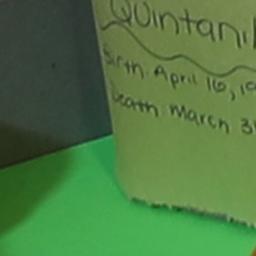 Quintanil
Birth: April 16, 19
Death: March 3